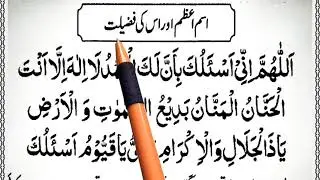 اسم اعظم اور اس کی فضیلت
اَللّٰهُمَّ اِنِّیْ اَسْئَلُكَ بِاَنَّ لَكَ لَا اِلٰهَ اِلَّا اَنْتَ
الْحَنَّانُ الْمَنَّانُ بَدِیْعُ السَّمٰوٰتِ وَ الْاَرْضِ
یَاذَا الْجَلَالِ وَالْاِكْرَامِ یَا قَیُّوْمُ اَسْئَلُكَ